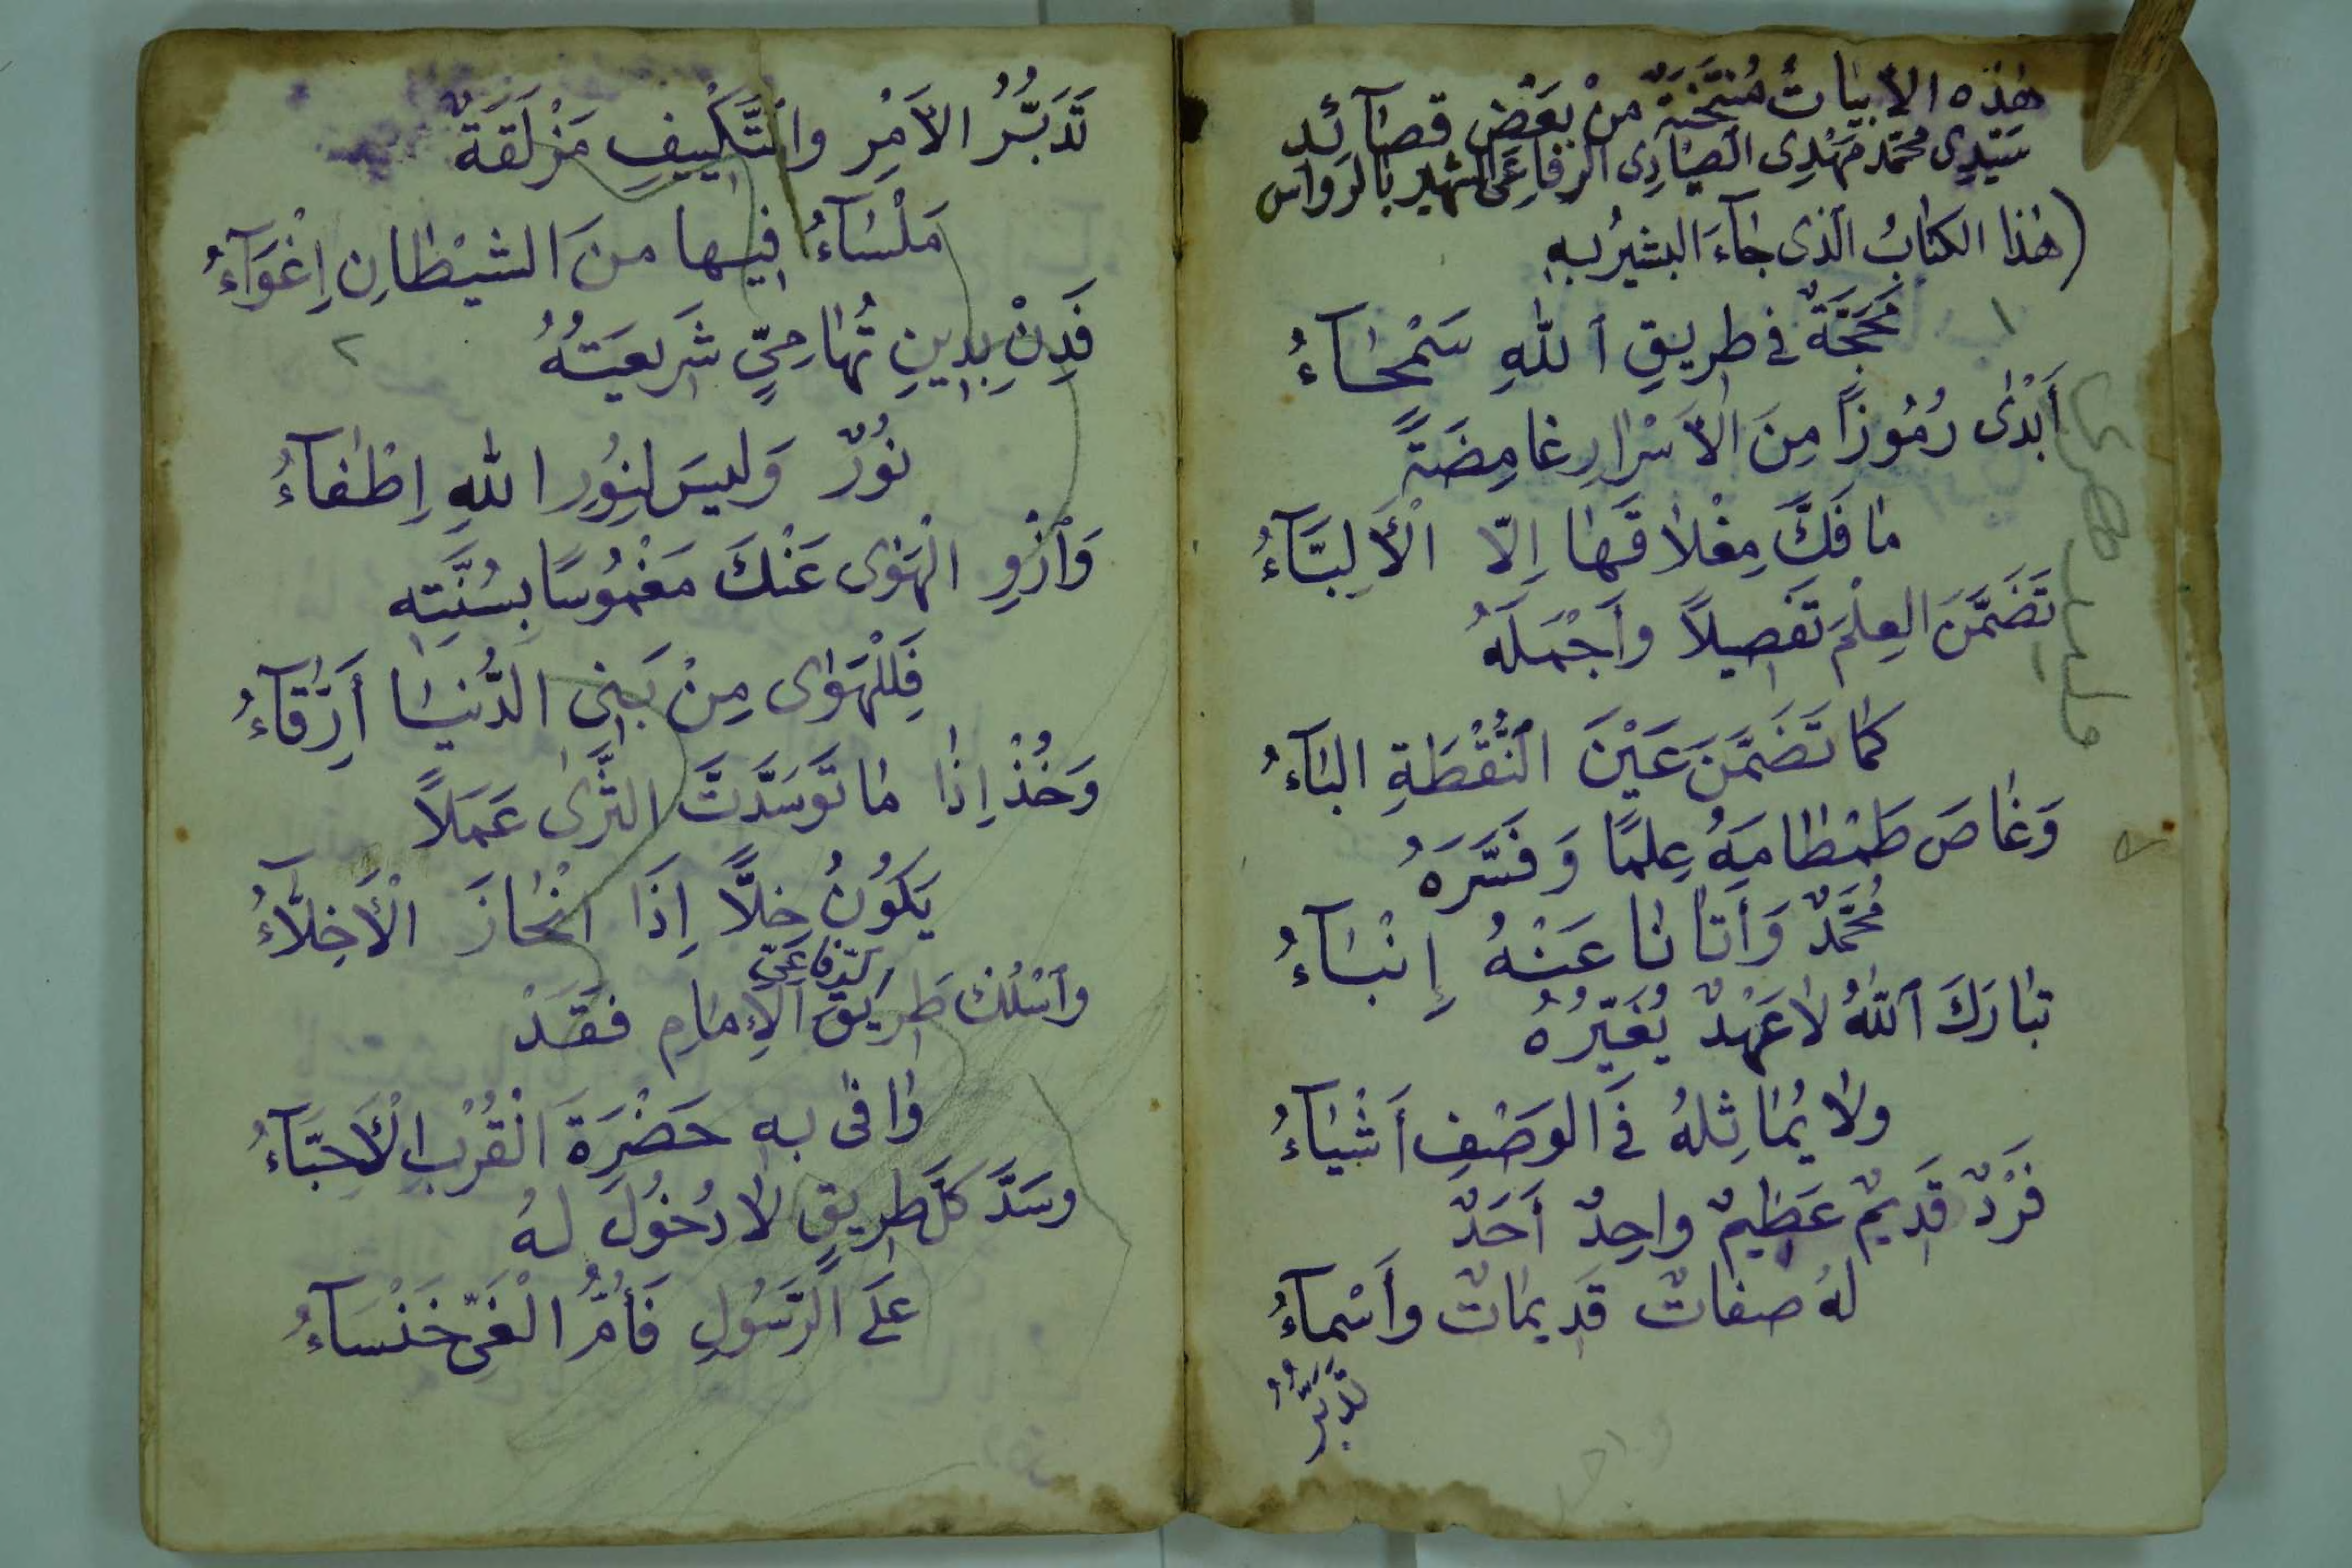 هٰذه الأبيَاتُ مُنتَخَبَةٌ مِنْ بَعْضِ قصَآئد
سَيّدِى مُحَمَّد مَهْدِى الصَيَّادِى الرّفاعِىّ الشّهير بالرّواس
(هٰذا الكتابُ الّذى جَآءَ البَشيرُ بهِ
١
مَحَجَّةٌ في طريقِ اللهِ سَمْحَآءُ
أَبْدٰى رُمُوزًا مِنَ الأَسْرارِ غامِضَةً
مٰا فَكَّ مِغْلاقَهَا إِلّا الْأَلِبَّآءُ
تَضَمَّنَ العِلْمَ تَفصِيلاً وأَجْمَلَهُ
كَمَا تَضَمَّنَ عَيْنَ النُّقْطَةِ البَاءُ
وَغَاصَ طَمْطَامَهُ عِلمًا وَفَسَّرَهُ
مُحَمَّدٌ وَأَتَانَا عَنْهُ إِنْبَآءُ
تبَارَكَ اللّهُ لاعَهْدٌ يُغَيِّرُهُ
ولا يُمَاثِلهُ فِي الوَصْفِ أَشْيَاءُ
فَرْدٌ قَدِيمٌ عَظِيمٌ واحِدٌ أَحَدٌ
لهُ صفاتٌ قَدِيمَاتٌ وأَسْمآءُ
تَدَبَّرُ
تَدَبَّرُ الأَمْرِ والتَّكْيِيفِ مَزْلَقَةٌ
مَلْسَآءُ فيها منَ الشيْطانِ إِغْوَآءُ
فَدِنْ بِدِينِ تُهَامِىٍّ شَرِيعَتُهُ
٢
نُورٌ وَليسَ لِنُورِ اللهِ إِطْفآءُ
وَازْوِ الْهَوٰى عَنْكَ مَغْمُوسًا بِسُنَّتِه
فَلِلْهَوٰى مِنْ بَنِى الدُّنيَا أَرِقَّآءُ
وَخُذْ إِذَا مَا تَوَسَّدْتَ الثَّرٰى عَمَلاً
يَكُونُ خِلًّا إِذَا انْحَازَ الْأَخِلَّآءُ
واسْلُكْ طَرِيقَ الإِمَامِ الرّفاعىّ فقَدْ
وٰافٰى به حَضْرَةَ الْقُرْبِ الْأَحِبَّآءُ
وسَدَّ كلَّ طرِيقٍ لا دُخُولَ لهُ
عَلَى الرَّسُولِ فَأُمُّ الْغَىِّ خَنْسَآءُ